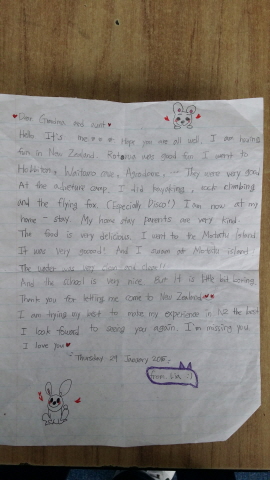 ♥Dear Grandma and aunt♥
Hello It's me Hope you are all well. I am having
fun in New Zealand. Rotorua was good fun. I went to
Hobbiton, Waitomo cave, Agrodome, They were very good
At the adventure camp, I did kayaking, rock climbing
and the flying fox. (Especially Disco!) I am now at my
home - stay. My home stay parents are very kind.
The food is very delicious. I went to the Island
It was very ground! And I swam at island!
The water was very clean and
And the school is very nice. But it is little bit boring.
Thank you for letting me come to New Zealand♥♥
I am trying my best to make my experience in NZ the best
I look foward to seeing you again. I'm missing you.
I love you♥
Thursday 29 January
from